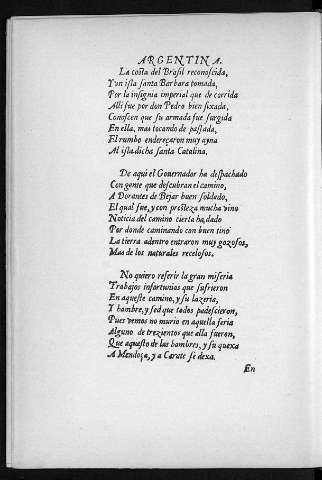 ARGENTINA.
La costa del Brasil reconoscida,
Y vn isla santa Barbara tomada,
Por la insignia imperial que de corrida
Alli fue por don Pedro bien fixada,
Conoscen que su armada fue surgida
En ella, mas tocando de passada,
El rumbo endereçaron muy ayna
Al isla dicha santa Catalina.
De aqui el Gouernador ha despachado
Con gente que descubran el camino,
A Dorantes de Bejar buen soldado,
El qual fue, y con presteza mucha vino
Noticia del camino cierta ha dado
Por donde caminando con buen tino
La tierra adentro entraron muy gozosos,
Mas de los naturales recelosos.
No quiero referir la gran miseria
Trabajos infortunios que sufrieron
En aqueste camino, y su lazeria,
Y hambre, y sed que todos padescieron,
Pues vemos no murio en aquella feria
Alguno de trezientos que alla fueron,
Que aquesto de las hambres, y su quexa
A Mendoça, y a Carate se dexa.
En